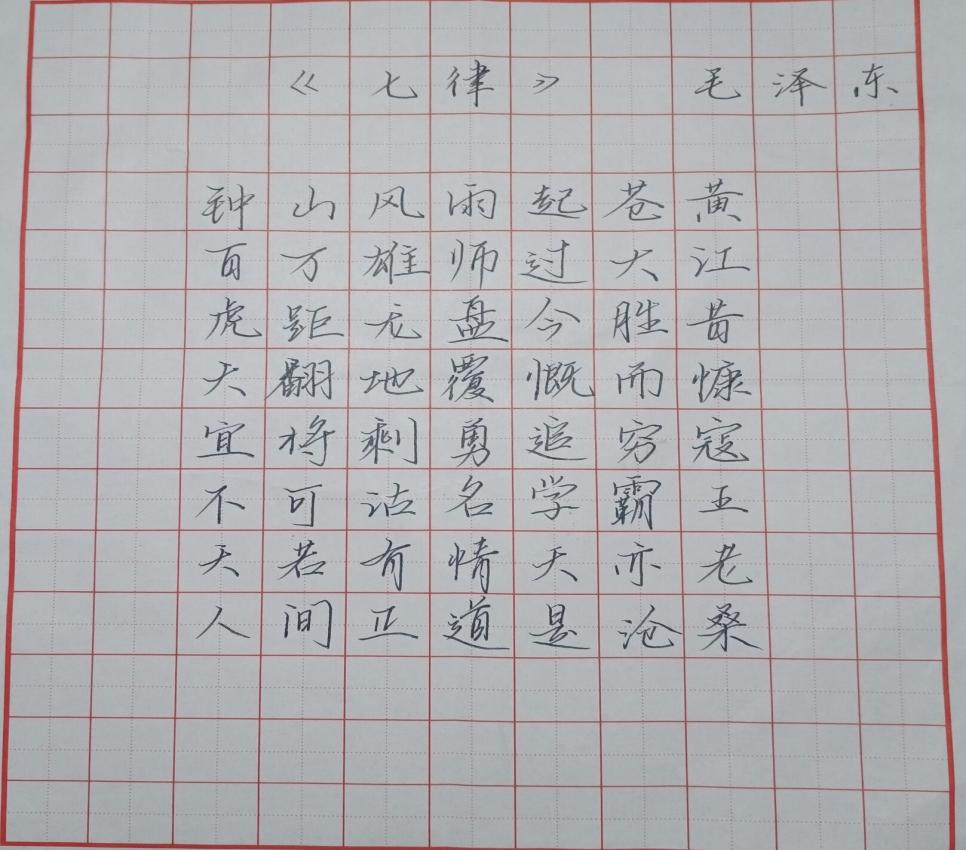 《七律》 毛泽东
钟山风雨起苍黄
百万雄师过大江
虎距无盘今胜昔
天翻地覆慨而慷
宜将剩勇追穷寇
不可沽名学霸王
天若有情天亦老
人间正道是沧桑